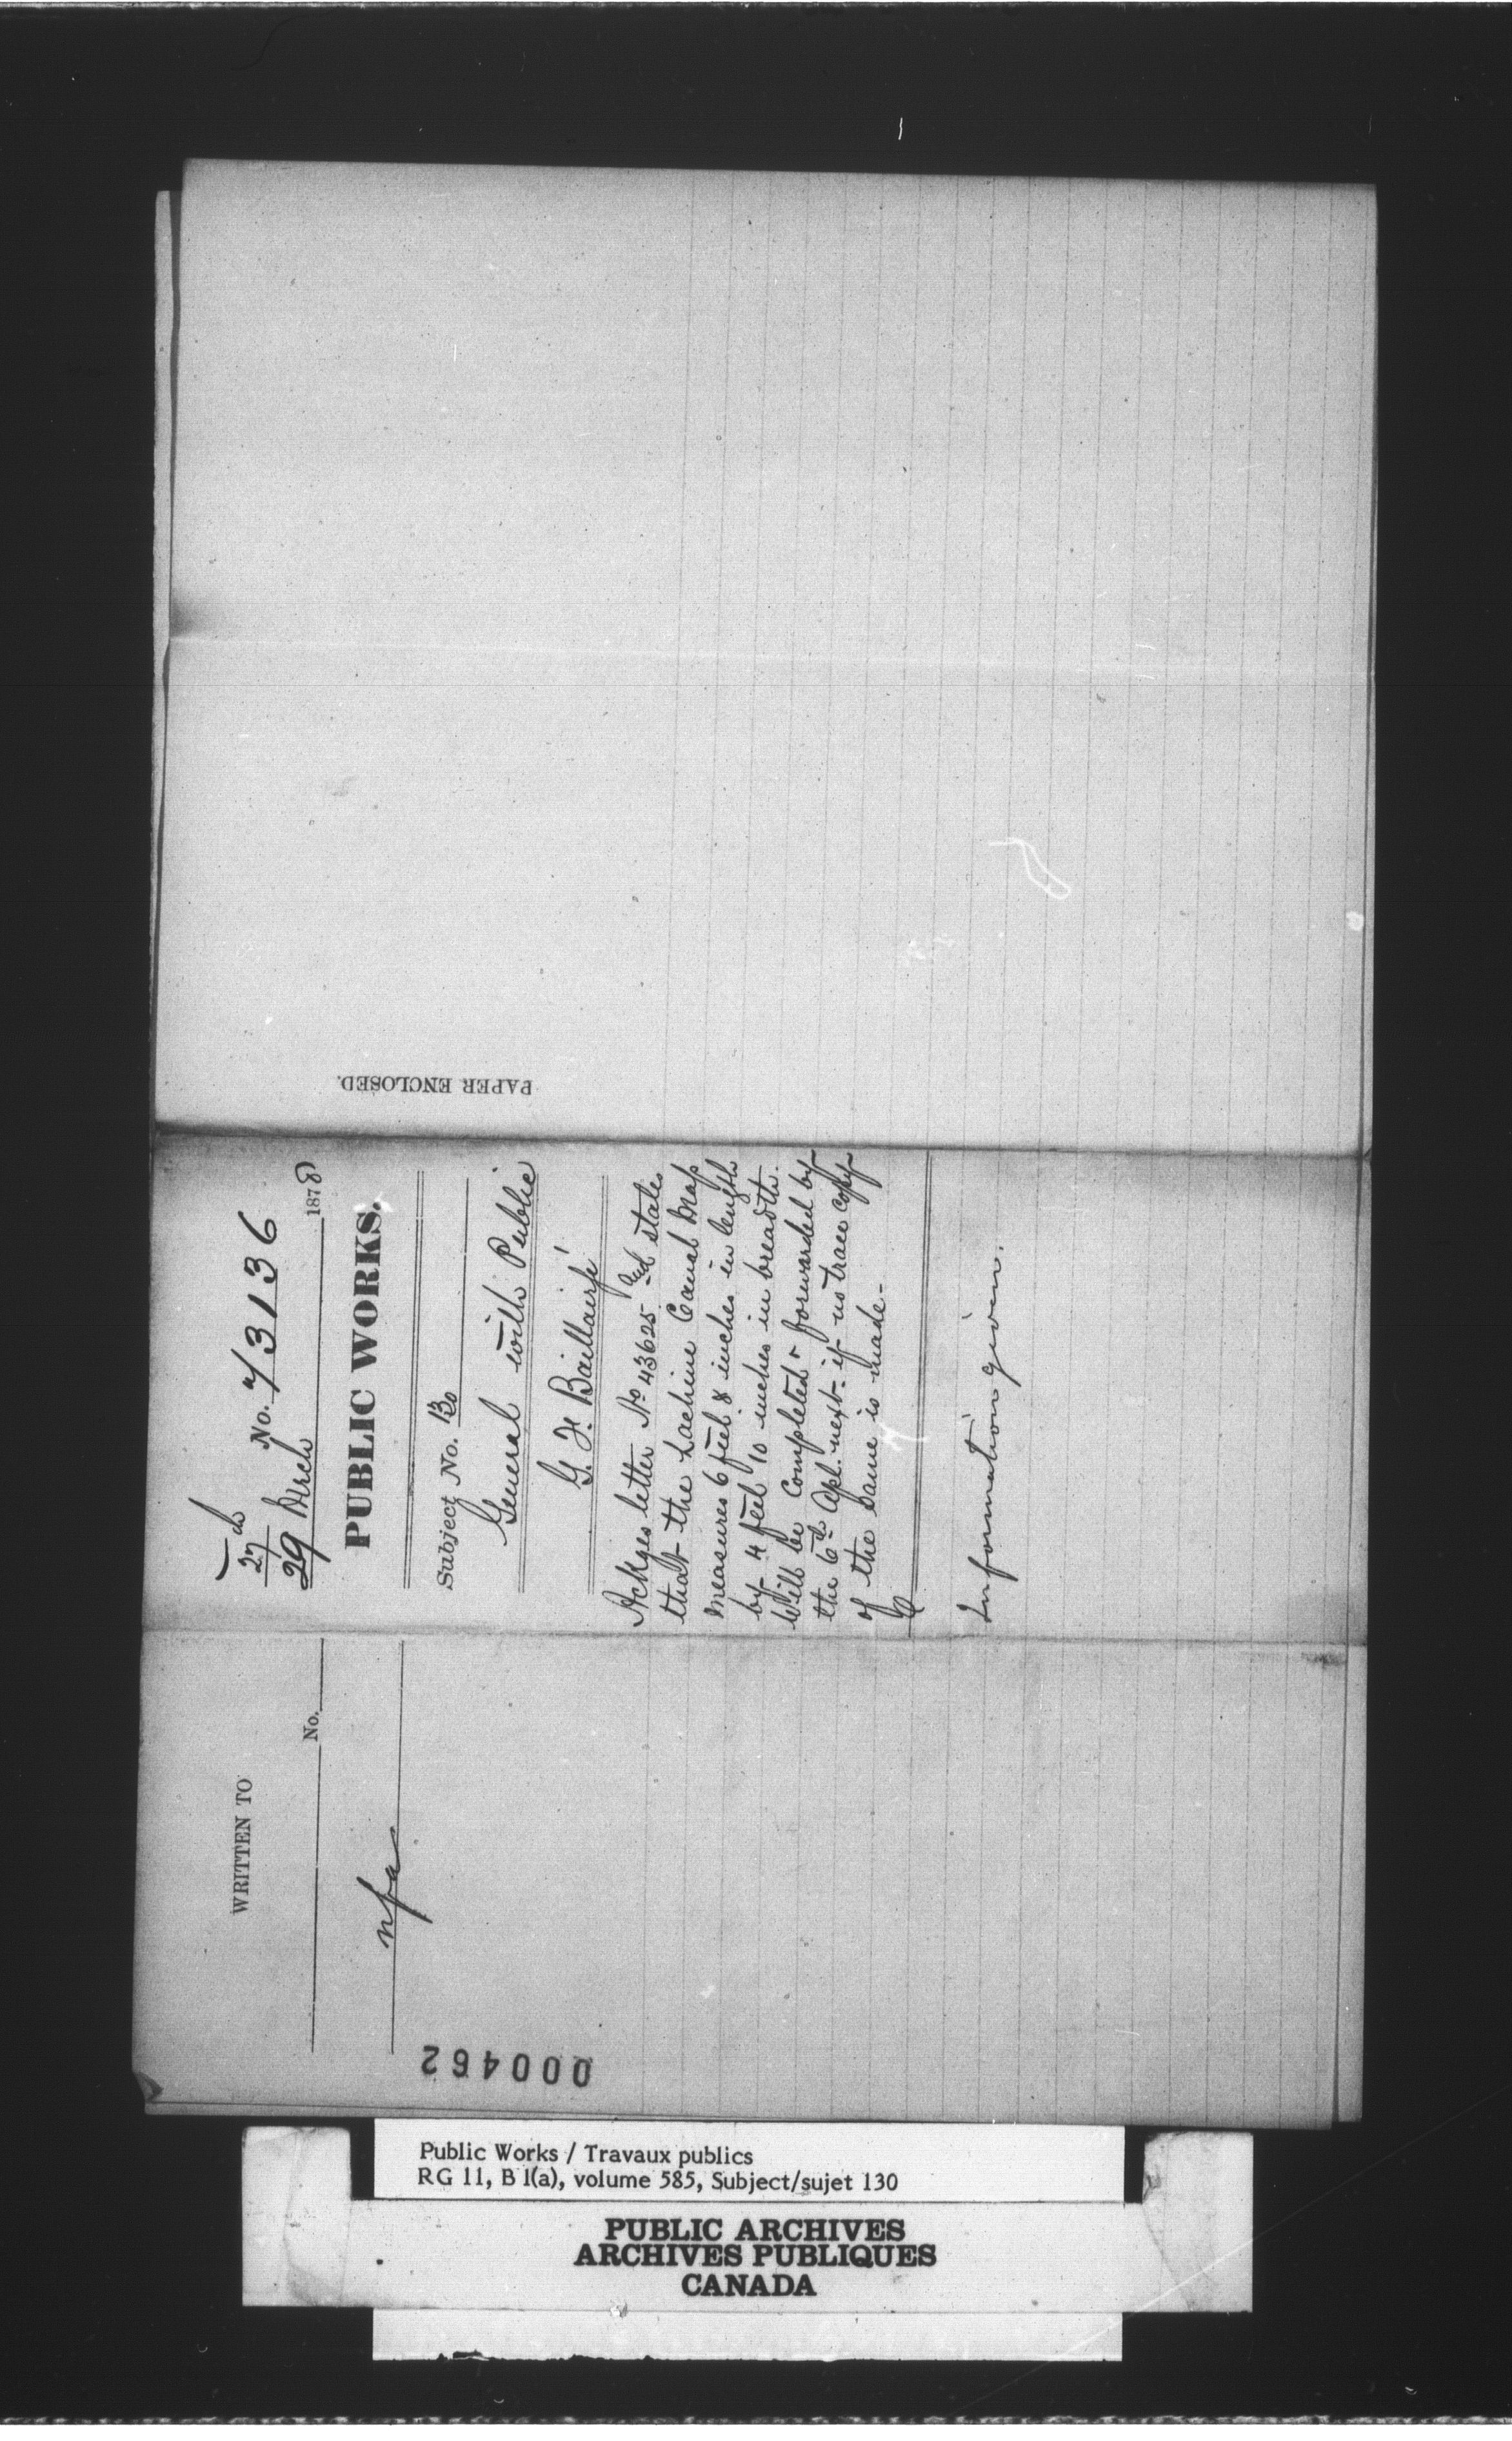 27th
29 March 1878
No. 73136
PUBLIC WORKS.
Subject No. 130
General with Public
G. F. Baillairgé
Ackges letter No 43625 and states
that the Lachine Canal Map
measures 6 feet 8 inches in length
by 4 feet 10 inches in breadth.
Will be completed & forwarded by
the 6th Apl. next - if no trace copy
of the same is made -
Information given.
PAPER ENCLOSED.
WRITTEN TO
No.
nfa
000462
Public Works / Travaux publics
RG 11, B 1(a), volume 585, Subject/sujet 130
PUBLIC ARCHIVES
ARCHIVES PUBLIQUES
CANADA